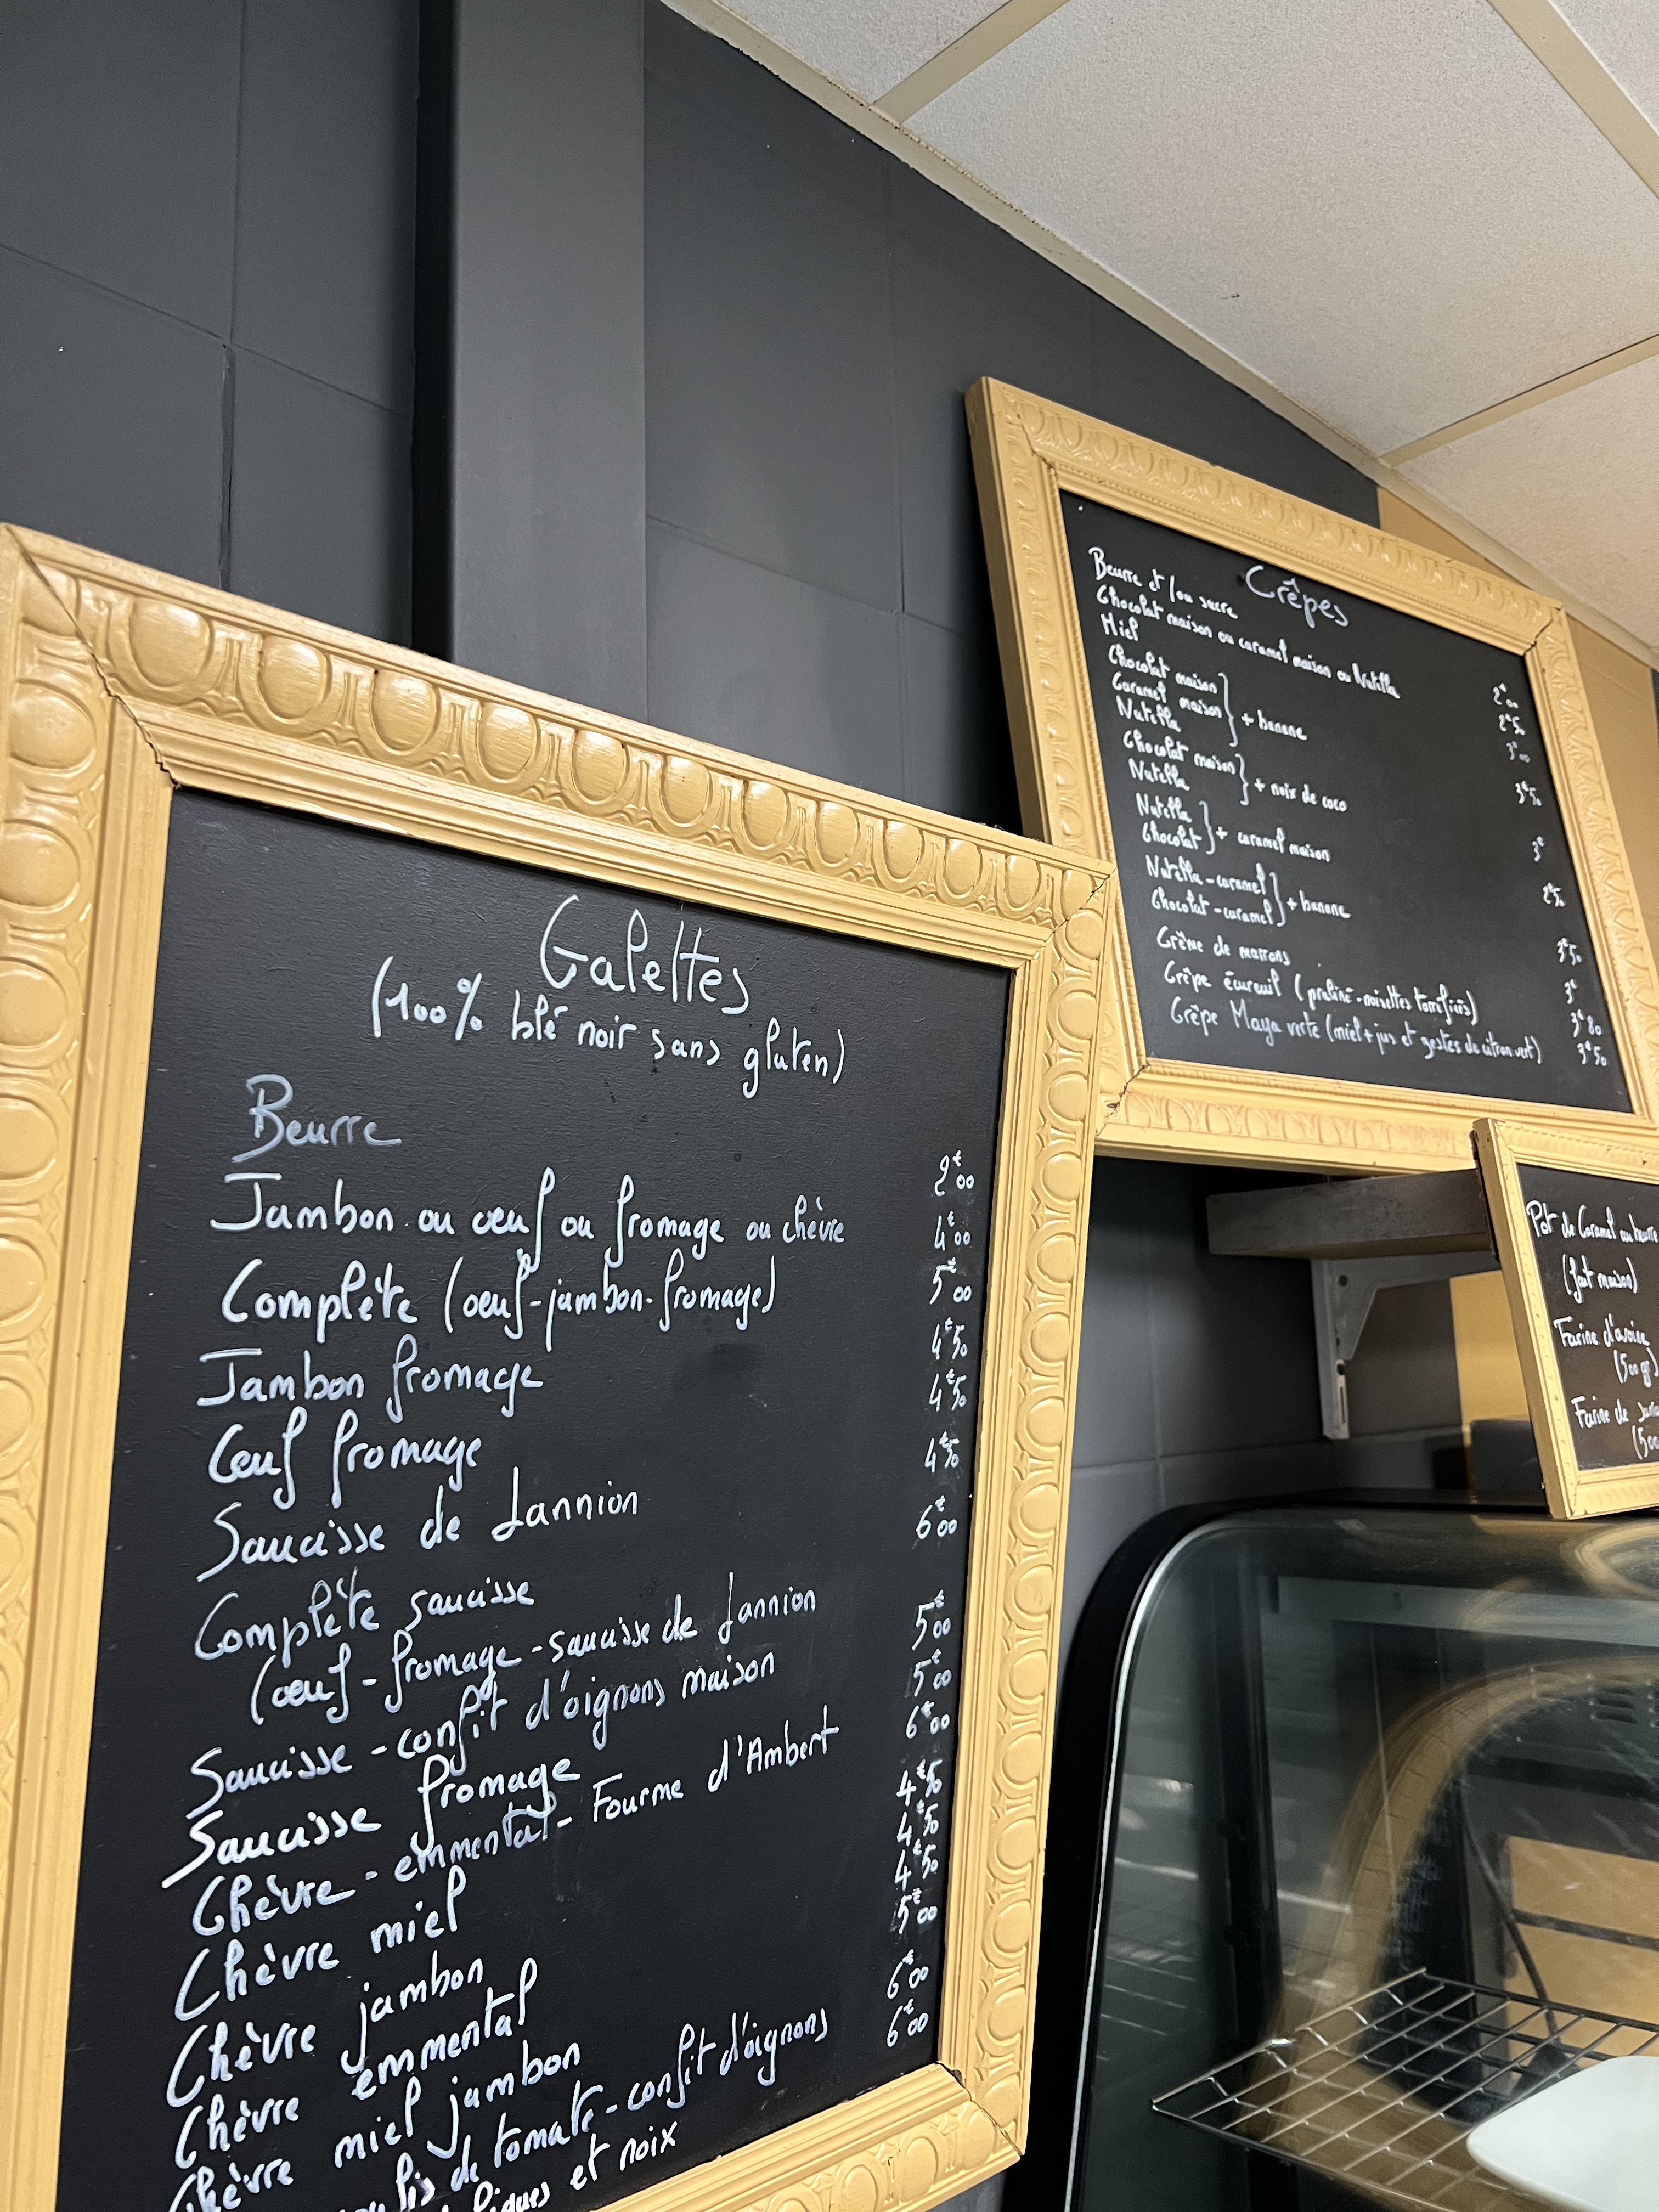 Galettes
(100% blé noir sans gluten)
Beurre 2€00
Jambon ou œuf ou fromage ou chèvre 4€00
Complète (œuf-jambon-fromage) 5€00
Jambon fromage 4€50
Œuf fromage 4€50
Saucisse de Lannion 4€50
Complète saucisse 6€00
(œuf-fromage-saucisse de Lannion
Saucisse-confit d'oignons maison 5€00
Saucisse fromage 5€00
Chèvre-emmental-Fourme d'Ambert 6€00
Chèvre miel 4€50
Chèvre jambon 4€50
Chèvre emmental 4€50
Chèvre miel jambon 5€00
de tomate-confit d'oignons 6€00
et noix 6€00
Crêpes
Beurre et/ou sucre 2€00
Chocolat maison ou caramel maison ou Nutella 2€50
Miel 3€00
Chocolat maison
Caramel maison } + banane 3€50
Nutella
Chocolat maison } + noix de coco 3€
Nutella
Nutella } + caramel maison
Chocolat
Nutella-caramel } + banane 3€50
Chocolat-caramel
Crème de marrons 3€
Crêpe écureuil (praliné-noisettes torréfiées) 3€80
Crêpe Maya verte (miel + jus et zestes de citron vert) 3€50
Pot de Caramel au beurre
(fait maison)
Farine d'avoine
(500 gr)
Farine de
(500